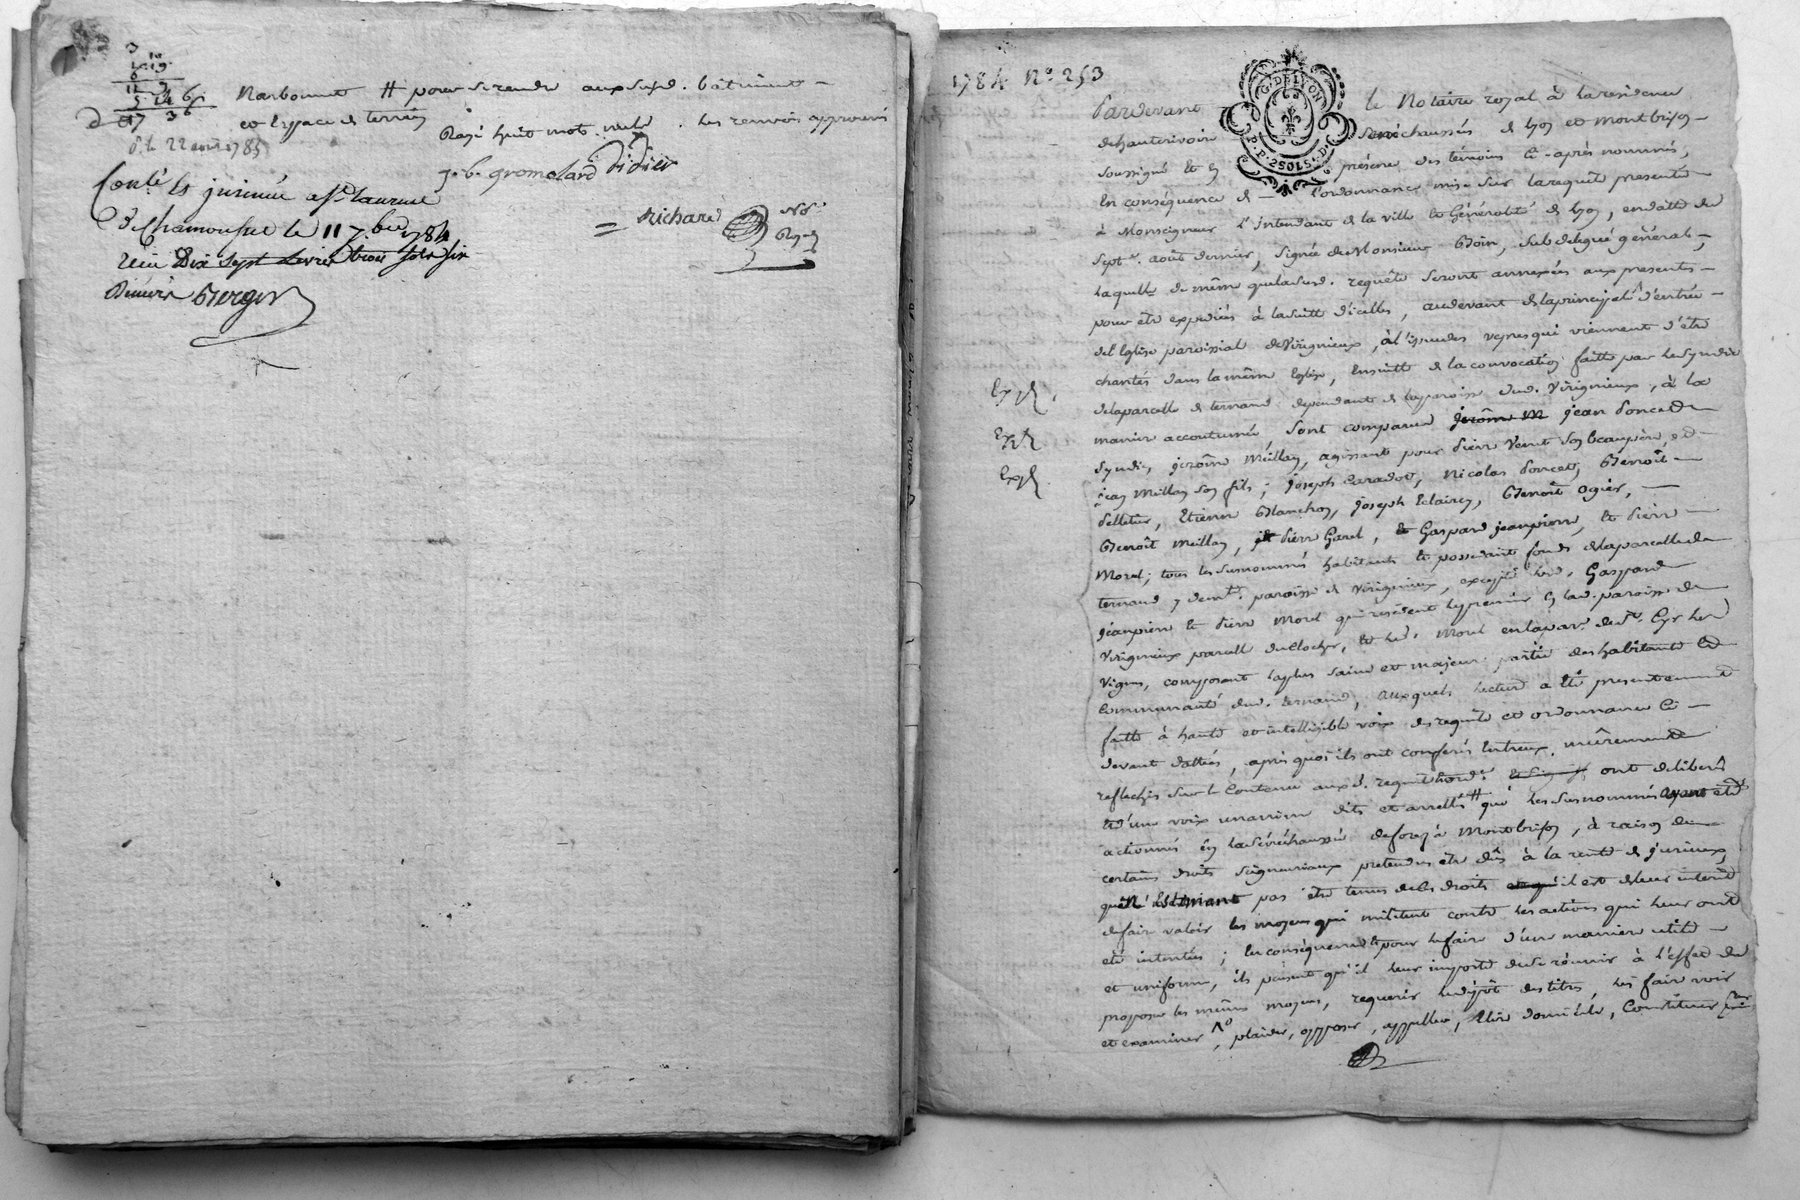 3
10
19
6
11 9
5 14 6
17 3 6
d. le 22 avril 1785
Narbonnet # pour se rendre aux susd. bâtiment
et espace de terrein
Rayé huit mots nuls. les renvois approuvés
j. b. gromolard didier
= Richard No. Royal
Conlé et insinué a St. Laurent
De Chamousset le 11 7.bre 1784
Reçu Dix Sept Livres trois sols six
Deniers Berger
1784 No. 253
G. DE LYON
P. P. 2SOLS 4.D.
Pardevant le Notaire royal à la residence
de hauterivoire Senéchaussés de lyon et montbrison
soussigné et en présence des témoins ci-après nommés,
En conséquence de l'ordonnance mise sur la requete presentée
à Monseigneur l'Intendant de la ville et Généralité de lyon, en datte du
sept. août dernier, signée de Monsieur Boin, subdelegué général,
laquelle de même que lad. requête seront annexées aux presentes
pour etre expediés à la suitte d'icelles, audevant de la principale d'entrée
de l'Eglise paroissial de Virignieux, à l'issue des vepres qui viennent d'être
chantés dans la même Eglise, Ensuitte de la convocation faitte par le Syndic
de la parcelle de ternand dependant de la paroisse dud. Virignieux, à la
maniere accoutumée, sont comparus jerôme M jean Poncet
Syndic, jerôme Meillan, agissant pour pierre Venet son beaupère, et
jean Meillan son fils; joseph Caradot, Nicolas Poncet, Benoît
Pelletier, Etienne Blanchon, joseph Eclaircy, Benoît Ogier,
Benoît Meillan, pierre Garel, et Gaspard jeanpierre, et pierre
Morel; tous les susnommés habitants et possedant fonds de la parcelle de
ternand paroisse de Virignieux, excepté led. Gaspard
jeanpierre et pierre Morel qui resident le premier en lad. paroisse de
Virignieux parcelle du clocher, et led. Morel en la par. de St. Cyr les
Vignes, composant la plus saine et majeure partie des habitants et
Communauté dud. ternand, auxquels lecture a été presentement
faitte à haute et intelligible voix des requête et ordonnance ci-
devant dattées, après quoi ils ont conferés entreux, mûrement
reflechis sur le Contenu auxd. requête ont deliberé
et d'une voix unanime dits et arrêtés # que les susnommés ayant eté
actionnés en la sénéchaussée de forez à Montbrison, à raison de
certains droits Seigneuriaux pretendus etre dûs à la rente de jurieux,
qu'ils estimant pas être tenus desd. droits et qu'il est de leur interêt
de faire valoir les moyens qui militent contre les actions qui leur ont
été intentées; En conséquence et pour le faire d'une maniere utile
et uniforme, ils pensent qu'il leur importe de se réunir à l'effet de
proposer les mêmes moyens, requerir le dépôt des titres, les faire voir
et examiner, plaider, opposer, appeller, Elire domicile, Constituer
Exp.
Exp.
Exp.